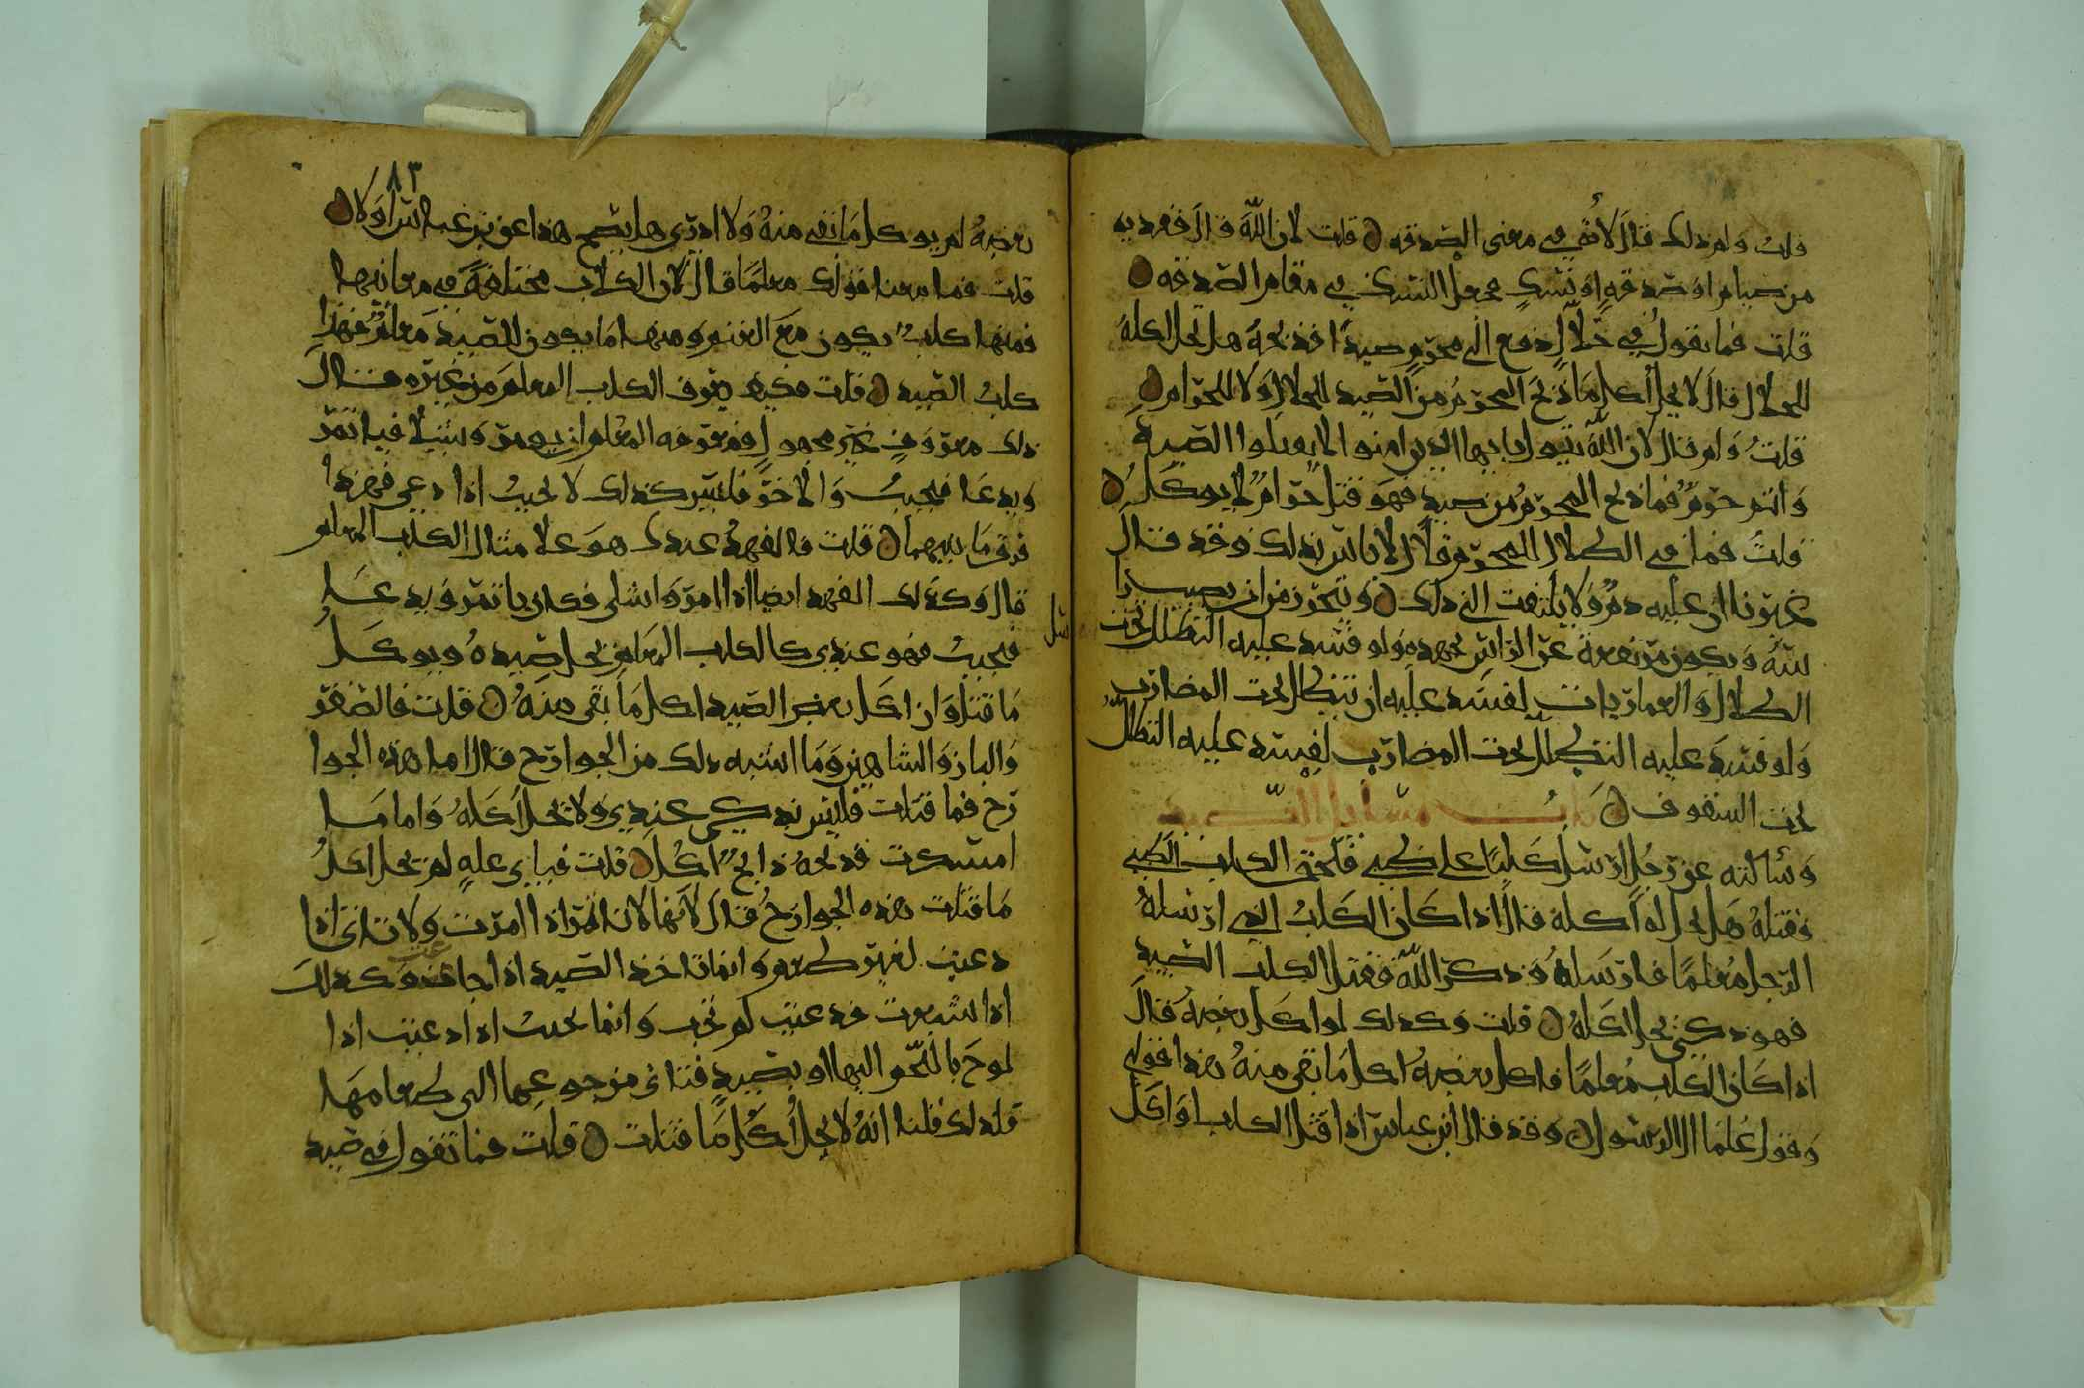 قلت ولم ذلك قال لأنه في معنى الصدقه ن قلت لان الله قال ففديه
من صيام او صدقه او نسك فجعل النسك في مقام الصدقه ن
قلت فما تقول في حلال دفع الى محرم صيدا فذبحه هل يحل اكله
للحلال قال لا يحل أكل ما ذبح المحرم من الصيد للحلال ولا للحرام ن
قلت ولم قال لان الله يقول يا ايها الذين امنوا لا تقتلوا الصيد
وانتم حرم فما ذبح المحرم من صيد فهو قتل حرام لا يوكل ن
قلت فما في الظلال للمحرم قال لا باس بذلك وقد قال
غيرنا ان عليه دم ولا يلتفت الى ذلك ن ويتحرز من ان يصيب
شه ويكون مرتفعة عن الراس بجهده ولو فسد عليه التظلل تحت
الظلال والعماريات لفسد عليه ان يتظلل تحت المضارب
ولو فسد عليه التظلل تحت المضارب لفسد عليه التظلل
تحت السقوف ن باب مسائل الصيد
وسألته عن رجل ارسل كلبا على ظبي فلحق الكلب الظبي
فقتله هل يحل له أكله قال اذا كان الكلب الذي ارسله
الرجل معلما فارسله وذكر الله فقتل الكلب الصيد
فهو ذكي يحل اكله ن قلت وكذلك لو اكل بعضه قال
اذا كان الكلب معلما فاكل بعضه اكل ما بقي منه هذا قولي
وقول علما ال الرسول ن وقد قال ابن عباس اذا قتل الكلب واكل
٨٣
بعضه لم يوكل ما بقي منه ولا ادري هل يصح هذا عن بن عباس اولا ن
قلت فما معنا قولك معلما قال لان الكلاب مختلفة في معانيها
فمنها كلب يكون مع الغنم ومنها ما يكون للصيد معلم فهذا
كلب الصيد ن قلت فكيف يعرف الكلب المعلم من غيره قال
ذلك معروف غير مجهول فمعرفه المعلم ان يومر ويشلا فياتمر
ويدعا فيجيب والاخر فليس كذلك لا يجيب اذا دعي فهذا
فرق ما بينهما ن قلت فالفهد عندك هو على مثال الكلب المعلم
قال وكذلك الفهد ايضا اذا امر واشلي فكان ياتمر ويدعا
شل
فيجيب فهو عندي كالكلب المعلم يحل صيده ويوكل
ما قتل وان اكل بعض الصيد اكل ما بقي منه ن قلت فالصقر
والباز والشاهين وما اشبه ذلك من الجوارح قال اما هذه الجوا
رح فما قتلت فليس بذكي عندي ولا يحل اكله واما ما
امسكت فذبحه ذابح اكل ن قلت فباي علة لم يحل اكل
ما قتلت هذه الجوارح قال لانها لا تاتمر اذا امرت ولا تاتي اذا
دعيت لغير طعم وانما تاخذ الصيد اذا اجاعت وكذلك
اذا شبعت فدعيت لم تجب وانما تجيب اذا دعيت اذا
لوح باللحم اليها او بصيد فتاتي من جوعها الى طعامها
فلذلك قلنا انه لا يحل أكل ما قتلت ن قلت فما تقول في صيد